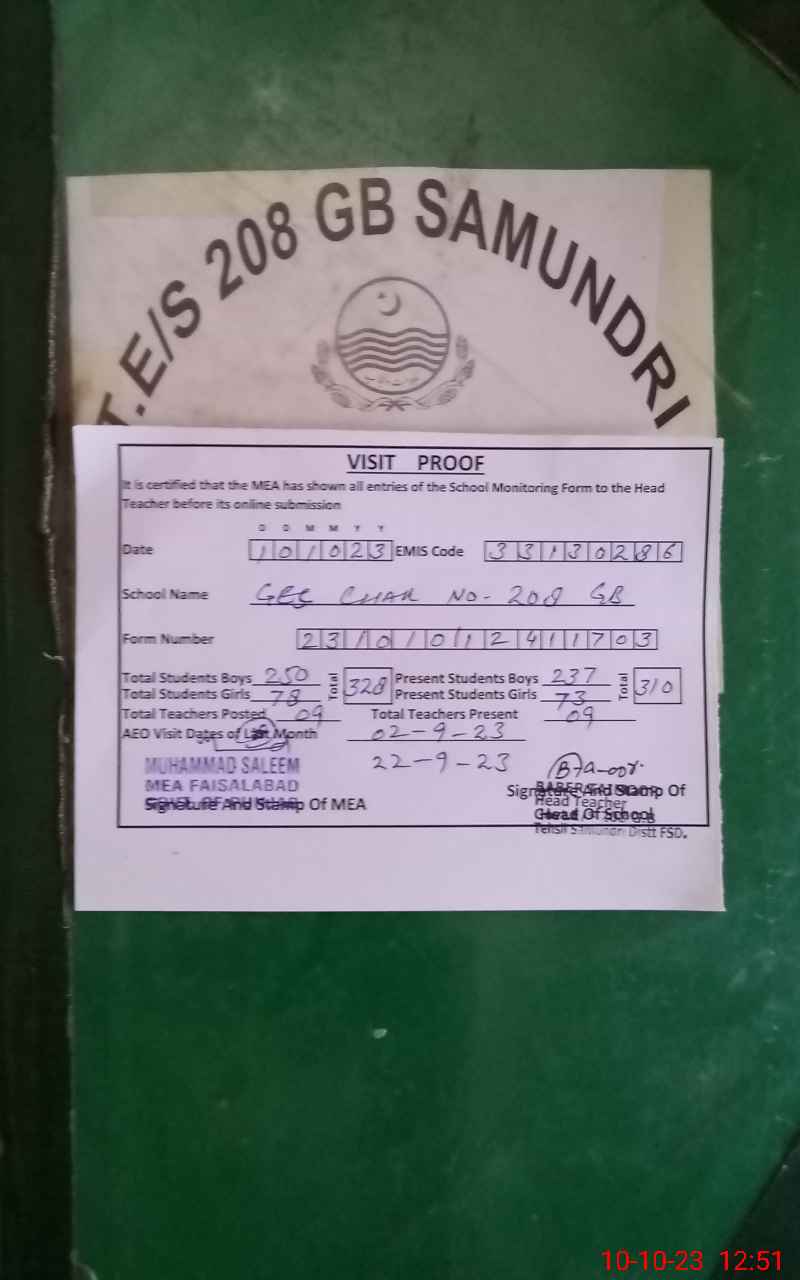 T.E/S 208 GB SAMUNDRI
VISIT PROOF
It is certified that the MEA has shown all entries of the School Monitoring Form to the Head
Teacher before its online submission
D D M M Y Y
Date 101023 EMIS Code 33130286
School Name GES CHAK NO- 208 GB
Form Number 2310101241703
Total Students Boys 250 Total 328 Present Students Boys 237 Total 310
Total Students Girls 78 Present Students Girls 73
Total Teachers Posted 09 Total Teachers Present 09
AEO Visit Dates of Last Month 02-9-23
22-9-23
MUHAMMAD SALEEM
MEA FAISALABAD
Signature And Stamp Of MEA
Signature And Stamp Of
Head Teacher
Head Of School
Tehsil Samundri Distt FSD.
10-10-23 12:51